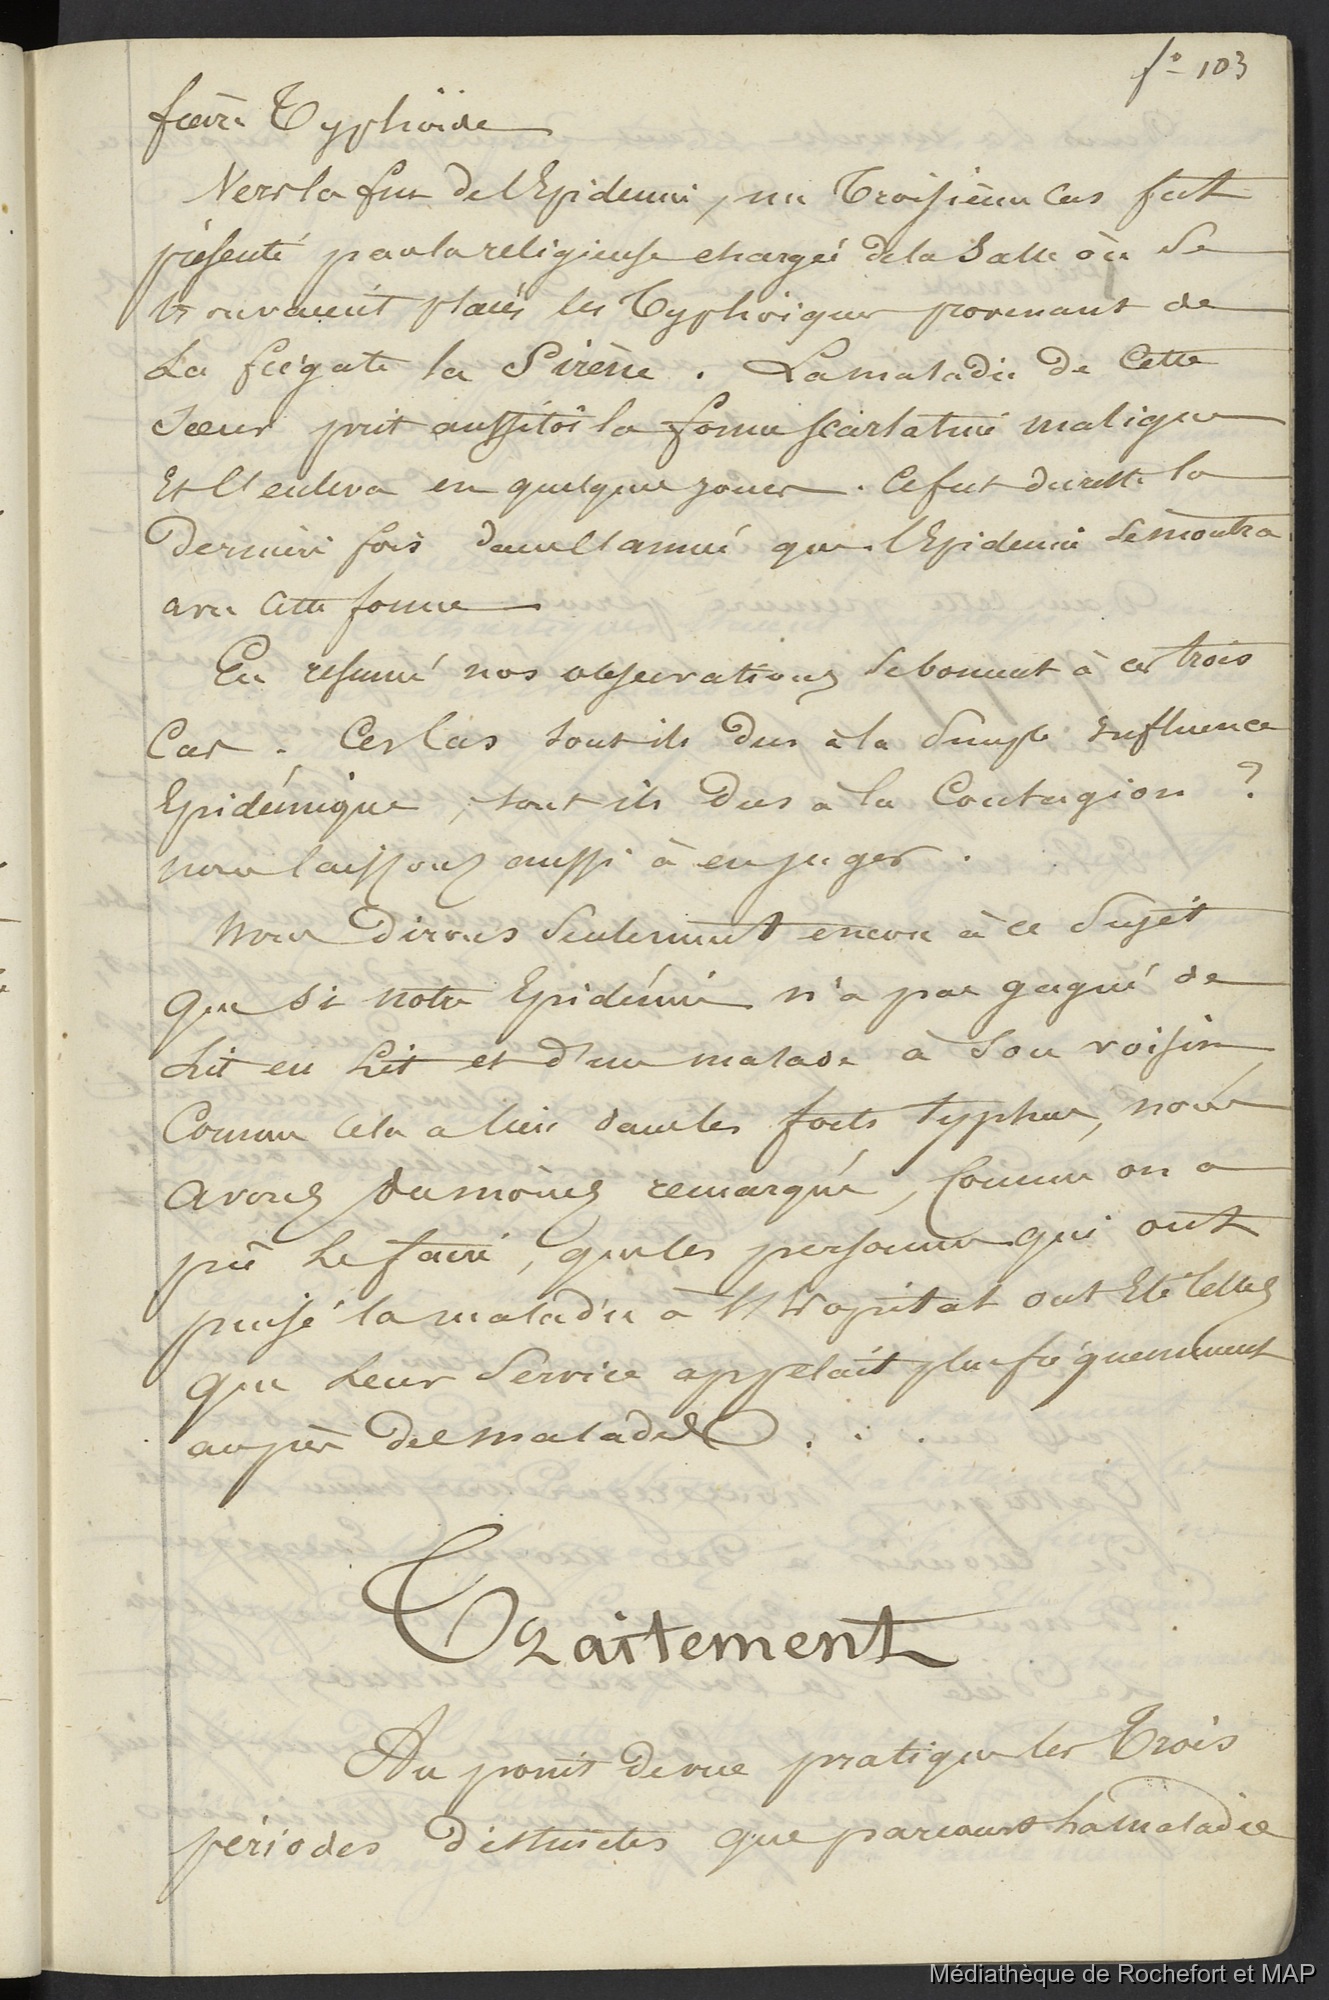 f° 103
fièvre Typhöide
Vers la fin de l'Epidemie, un Troisième Cas fut
présenté par la religieuse chargée de la Salle où Se
trouvaient placés les Typhoïques provenant de
La frégate la Sirène. La maladie de Cette
Soeur prit aussitôt la forme scarlatine maligne
Et l'enleva en quelques jours. Ce fut du reste la
Dernière fois dans l'année que l'Epidemie Se montra
avec Cette forme
En resumé nos observations Se bornent à ces trois
Cas. Ces Cas sont ils Dus à la Simple Influence
Epidémique, sont ils Dus à la Contagion ?
nous laissons aussi à en juger.
Nous Dirons Seulement encore à ce Sujet
Que si notre Epidémie n'a pas gagné de
Lit en Lit et d'un malade à Son voisin
Comme cela a lieu dans les forts Typhus, nous
Avons Du moins remarqué, Comme on a
pû Le faire, que les personnes qui ont
puisé la maladie à l'Hopital ont Eté telles
Que Leur Service appelait plus fréquemment
auprès Des malades . . .
Traitement
Au point De vue pratique les Trois
périodes Distinctes que parcourt La Maladie
Médiathèque de Rochefort et MAP